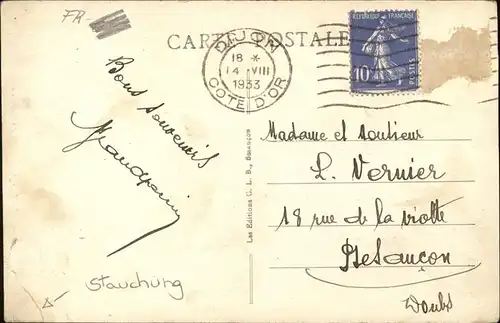 FR
CARTE POSTALE
DIJON
18 *
14 VIII
1933
COTE D'OR
REPUBLIQUE FRANÇAISE
10
POSTES
Bons souvenirs
Madame et
L. Vernier
18 rue de la
Besançon
Doubs
Les Editions C. L. B., Besançon
Stauchung